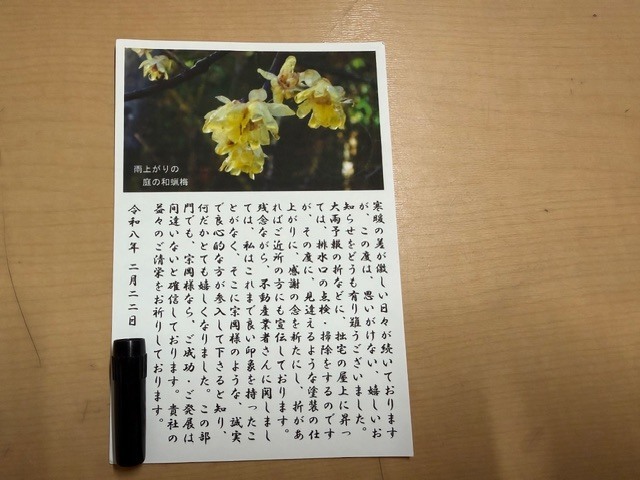 雨上がりの
庭の和蝋梅
寒暖の差が激しい日々が続いております
が、この度は、思いがけない、嬉しいお
知らせをどうも有り難うございました。
大雨予報の折などに、拙宅の屋上に昇っ
ては、排水口の点検・掃除をするのです
が、その度に、見違えるような塗装の仕
上がりに、感謝の念を新たにし、折があ
ればご近所の方にも宣伝しております。
残念ながら、不動産業者さんに関しまし
ては、私はこれまで良い印象を持ったこ
とがなく、そこに宗岡様のような、誠実
で良心的な方が参入して下さると知り、
何だかとても嬉しくなりました。この部
門でも、宗岡様なら、ご成功・ご発展は
間違いないと確信しております。貴社の
益々のご清栄をお祈りしております。
令和八年 二月二二日